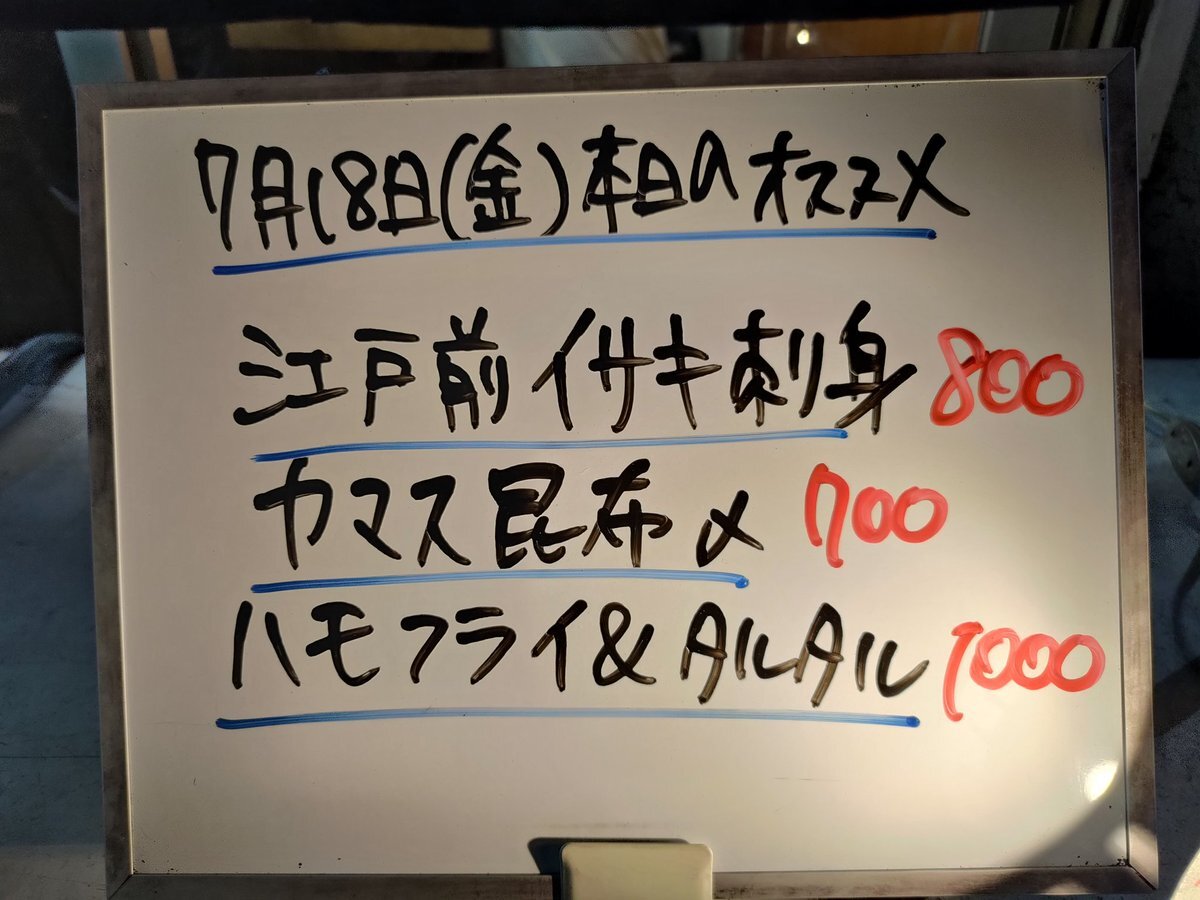 7月18日(金)本日のオススメ
江戸前イサキ刺身 800
カマス昆布〆 700
ハモフライ&タルタル 1000